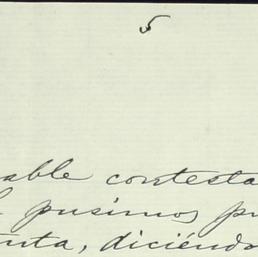 5
able contesta
pusimos pr
nta, diciéndo